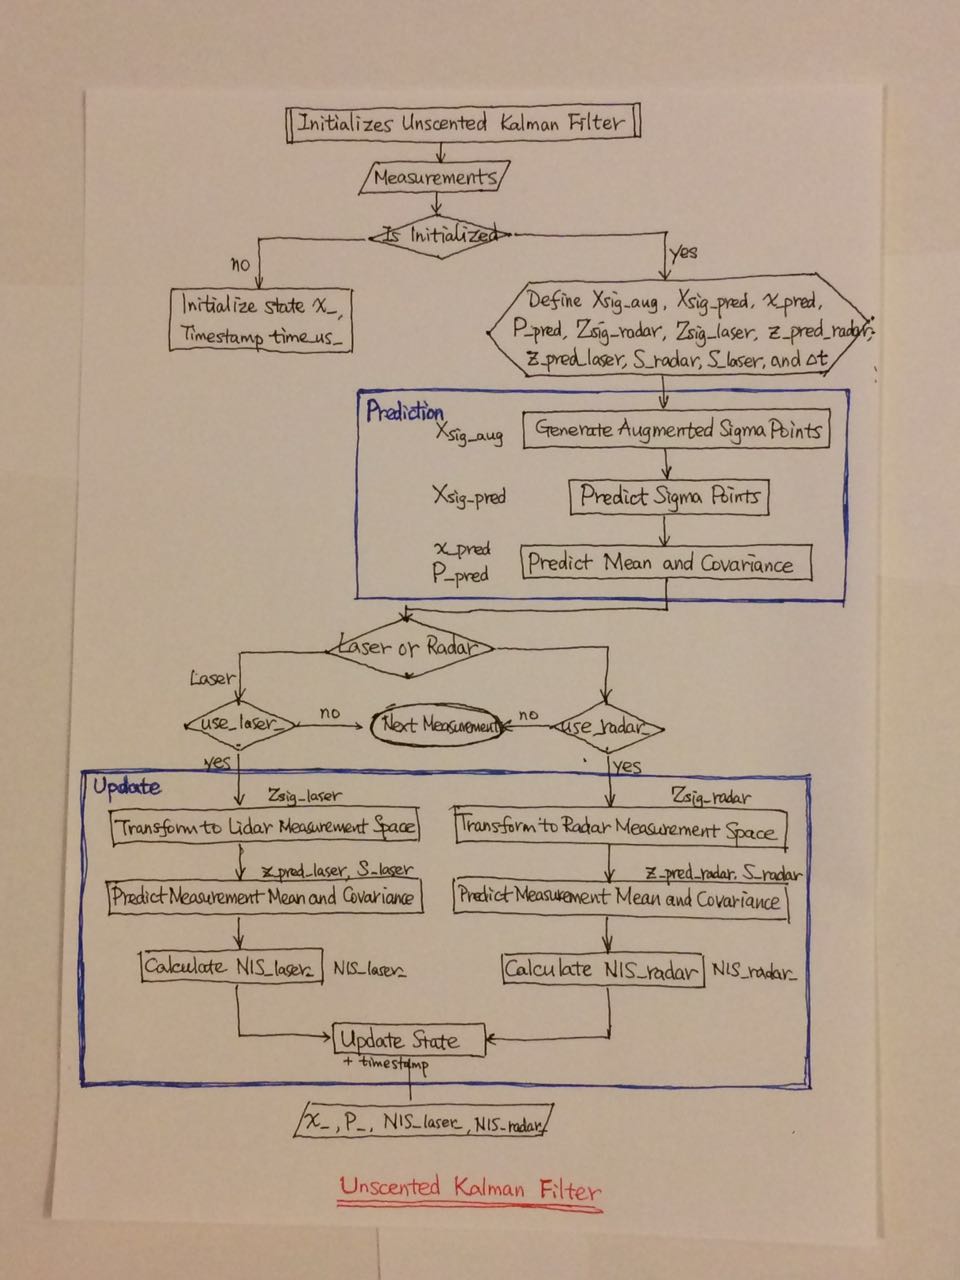 Initializes Unscented Kalman Filter
Measurements
Is Initialized
no
yes
Initialize state x_,
Timestamp time_us_
Define Xsig_aug, Xsig_pred, x_pred,
P_pred, Zsig_radar, Zsig_laser, z_pred_radar,
z_pred_laser, S_radar, S_laser, and Δt
Prediction
Xsig_aug
Generate Augmented Sigma Points
Xsig-pred
Predict Sigma Points
x_pred
P_pred
Predict Mean and Covariance
Laser or Radar
Laser
use_laser_
no
Next Measurement
no
use_radar_
yes
yes
Update
Zsig_laser
Zsig_radar
Transform to Lidar Measurement Space
Transform to Radar Measurement Space
z_pred_laser, S_laser
z_pred_radar, S_radar
Predict Measurement Mean and Covariance
Predict Measurement Mean and Covariance
Calculate NIS_laser_
NIS_laser_
Calculate NIS_radar
NIS_radar_
Update State
+ timestamp
x_, P_, NIS_laser_, NIS_radar_
Unscented Kalman Filter